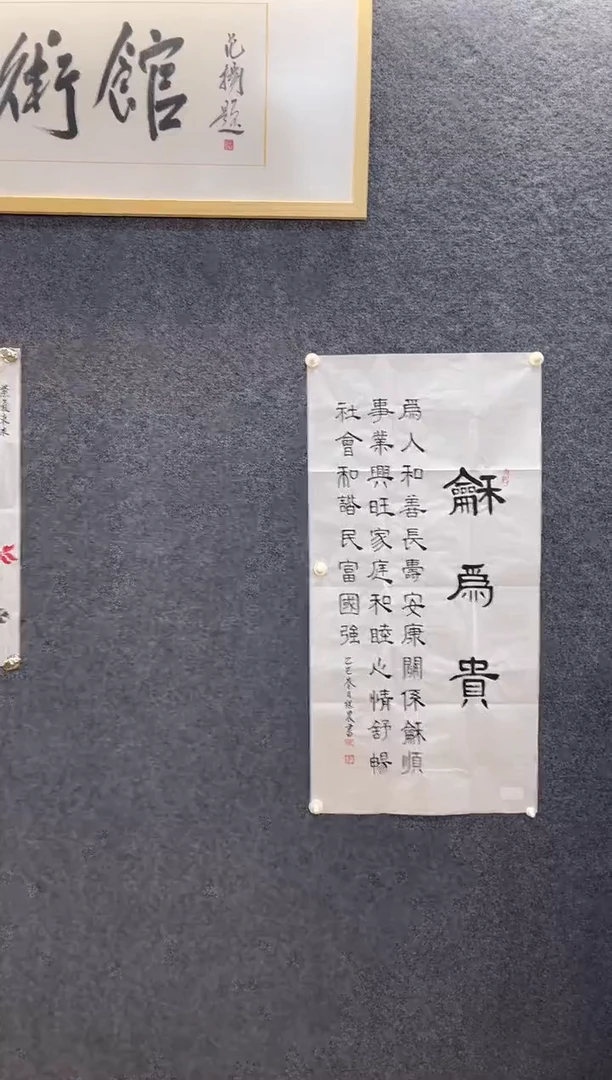 術館
題
龢為貴
為人和善長壽安康關係龢順
事業興旺家庭和睦心情舒暢
社會和諧民富國強
乙巳春月
書